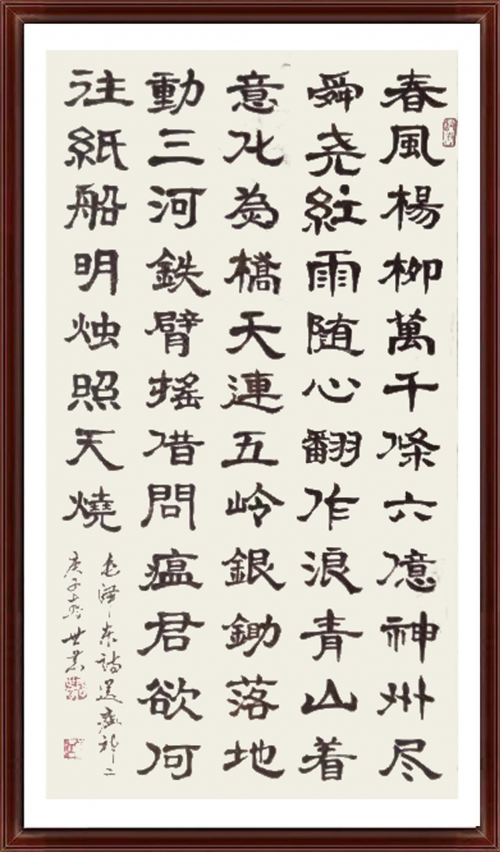 春風楊柳萬千條六億神州尽
舜尧紅雨随心翻作浪青山着
意化為橋天連五岭銀鋤落地
動三河鉄臂摇借問瘟君欲何
往紙船明烛照天燒
毛澤东詩送瘟神二
庚子春世